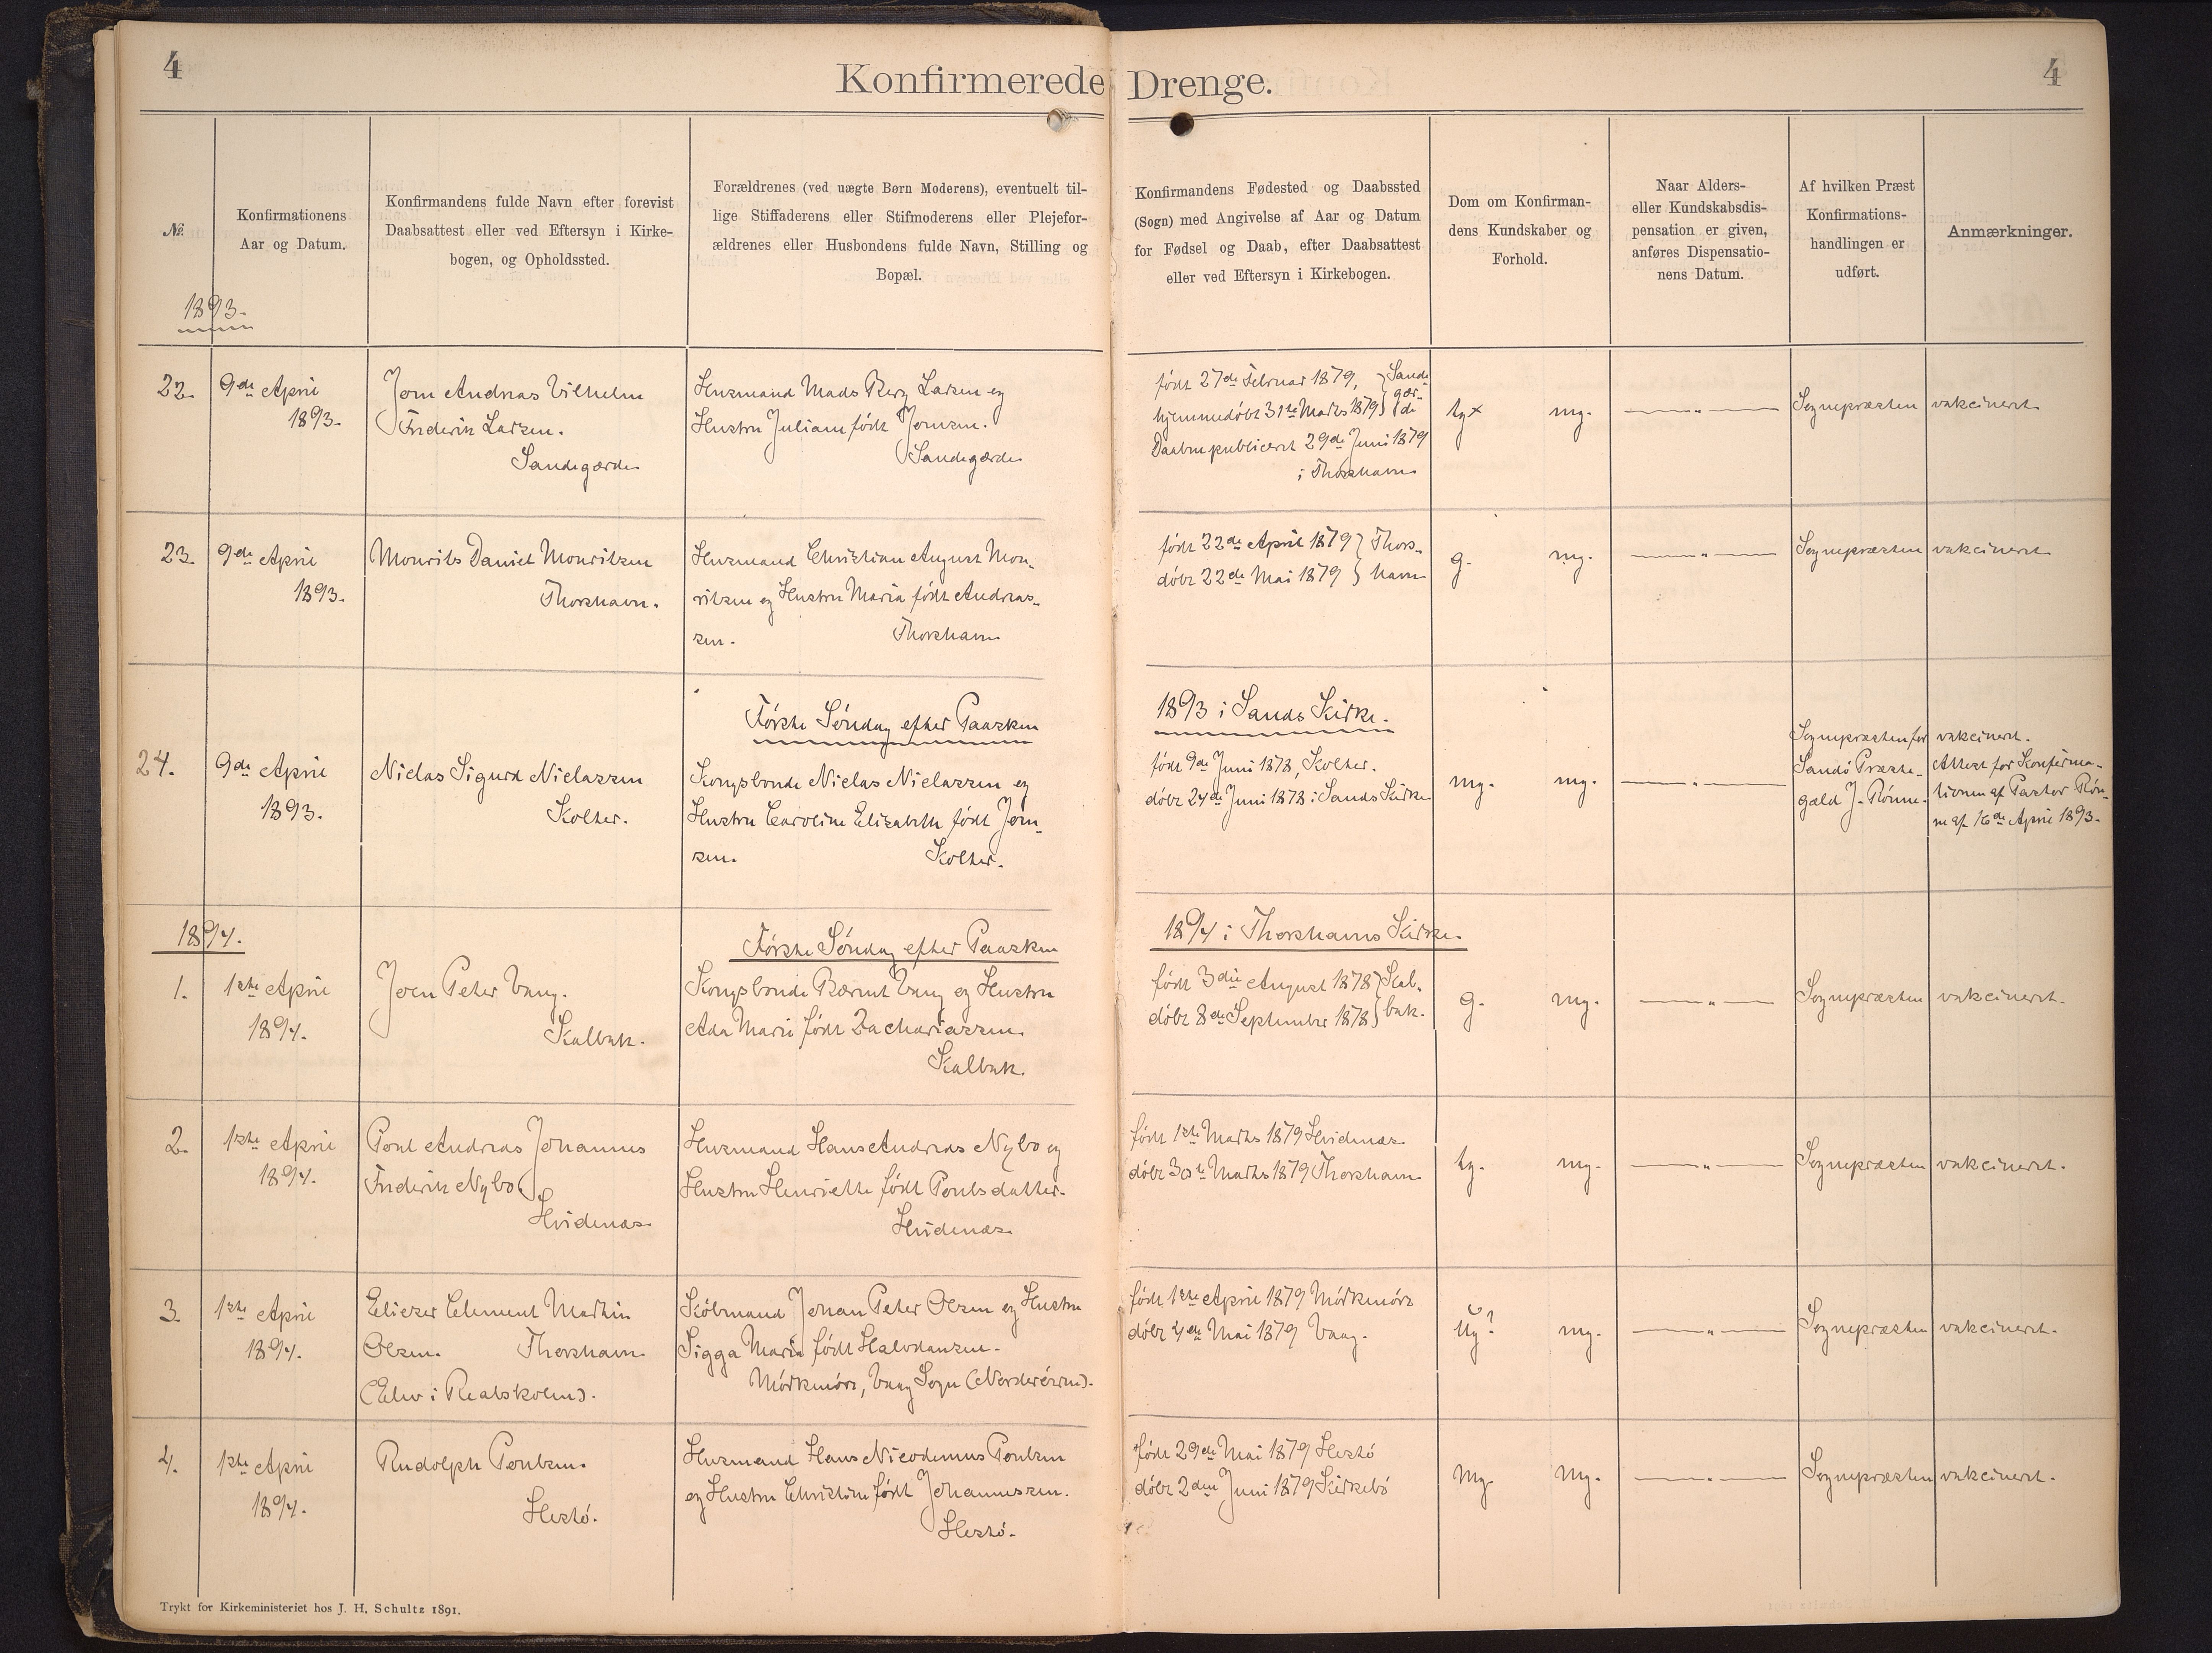 4
Konfirmerede Drenge.
4
No.
Konfirmationens
Aar og Datum.
Konfirmandens fulde Navn efter forevist
Daabsattest eller ved Eftersyn i Kirke-
bogen, og Opholdssted.
Forældrenes (ved uægte Børn Moderens), eventuelt til-
lige Stiffaderens eller Stifmoderens eller Plejefor-
ældrenes eller Husbondens fulde Navn, Stilling og
Bopæl.
Konfirmandens Fødested og Daabssted
(Sogn) med Angivelse af Aar og Datum
for Fødsel og Daab, efter Daabsattest
eller ved Eftersyn i Kirkebogen.
Dom om Konfirman-
dens Kundskaber og
Forhold.
Naar Alders-
eller Kundskabsdis-
pensation er given,
anføres Dispensatio-
nens Datum.
Af hvilken Præst
Konfirmations-
handlingen er
udført.
Anmærkninger.
1893.
22.
9de April
1893.
Joen Andreas Vilhelm
Frederik Larsen.
Sandegærde
Huusmand Mads Berg Larsen og
Hustru Juliane født Joensen.
Sandegærde
født 27de Februar 1879,
hjemmedøbt 31te Marts 1879
Sande
gær-
de
Daaben publiceret 29de Juni 1879
i Thorshavn
tg+
mg.
— " —
Sognepræsten
vakcineret
23.
9de April
1893.
Mourits Daniel Mouritsen
Thorshavn.
Huusmand Christian August Mou-
ritsen og Hustru Maria født Andreas-
sen.
Thorshavn
født 22de April 1879
døbt 22de Mai 1879
Thors-
havn
g.
mg.
— " —
Sognepræsten
vakcineret
Første Søndag efter Paasken
1893 i Sands Kirke.
24.
9de April
1893.
Niclas Sigurd Niclassen
Kolter.
Kongsbonde Niclas Niclassen og
Hustru Caroline Elisabeth født Joen-
sen.
Kolter.
født 9de Juni 1878, Kolter.
døbt 24de Juni 1878 i Sands Kirke
mg.
mg.
— " —
Sognepræsten for
Sandø Præste-
gæld J. Rønne.
vakcineret.
Attest for Konfirma-
tionen af Pastor Røn-
ne af 16de April 1893.
1894.
Første Søndag efter Paasken
1894 i Thorshavns Kirke.
1.
1ste April
1894.
Joen Peter Vang.
Kalbak.
Kongsbonde Bærent Vang og Hustru
Ada Marie født Zachariassen
Kalbak.
født 3die August 1878
døbt 8de September 1878
Kal-
bak.
g.
mg.
— " —
Sognepræsten
vakcineret.
2.
1ste April
1894.
Poul Andreas Johannes
Frederik Nybo
Hvidenæs
Huusmand Hans Andreas Nybo og
Hustru Henriette født Poulsdatter.
Hvidenæs
født 1ste Marts 1879 Hvidenæs
døbt 30te Marts 1879 Thorshavn
tg.
mg.
— " —
Sognepræsten
vakcineret.
3.
1ste April
1894.
Eliezer Clement Martin
Olsen. Thorshavn
(Elev i Realskolen).
Købmand Johan Peter Olsen og Hustru
Sigga Maria født Halvdansen.
Mørkenøre, Vaag Sogn (Norderøerne).
født 1ste April 1879 Mørkenøre
døbt 4de Mai 1879 Vaag.
Ug?
mg.
— " —
Sognepræsten
vakcineret.
4.
1ste April
1894.
Rudolph Poulsen.
Hestø.
Huusmand Hans Nicodemus Poulsen
og Hustru Christine født Johannessen.
Hestø.
født 29de Mai 1879 Hestø
døbt 2den Juni 1879 Kirkebø
Mg.
Mg.
— " —
Sognepræsten
vakcineret.
Trykt for Kirkeministeriet hos J. H. Schultz 1891.